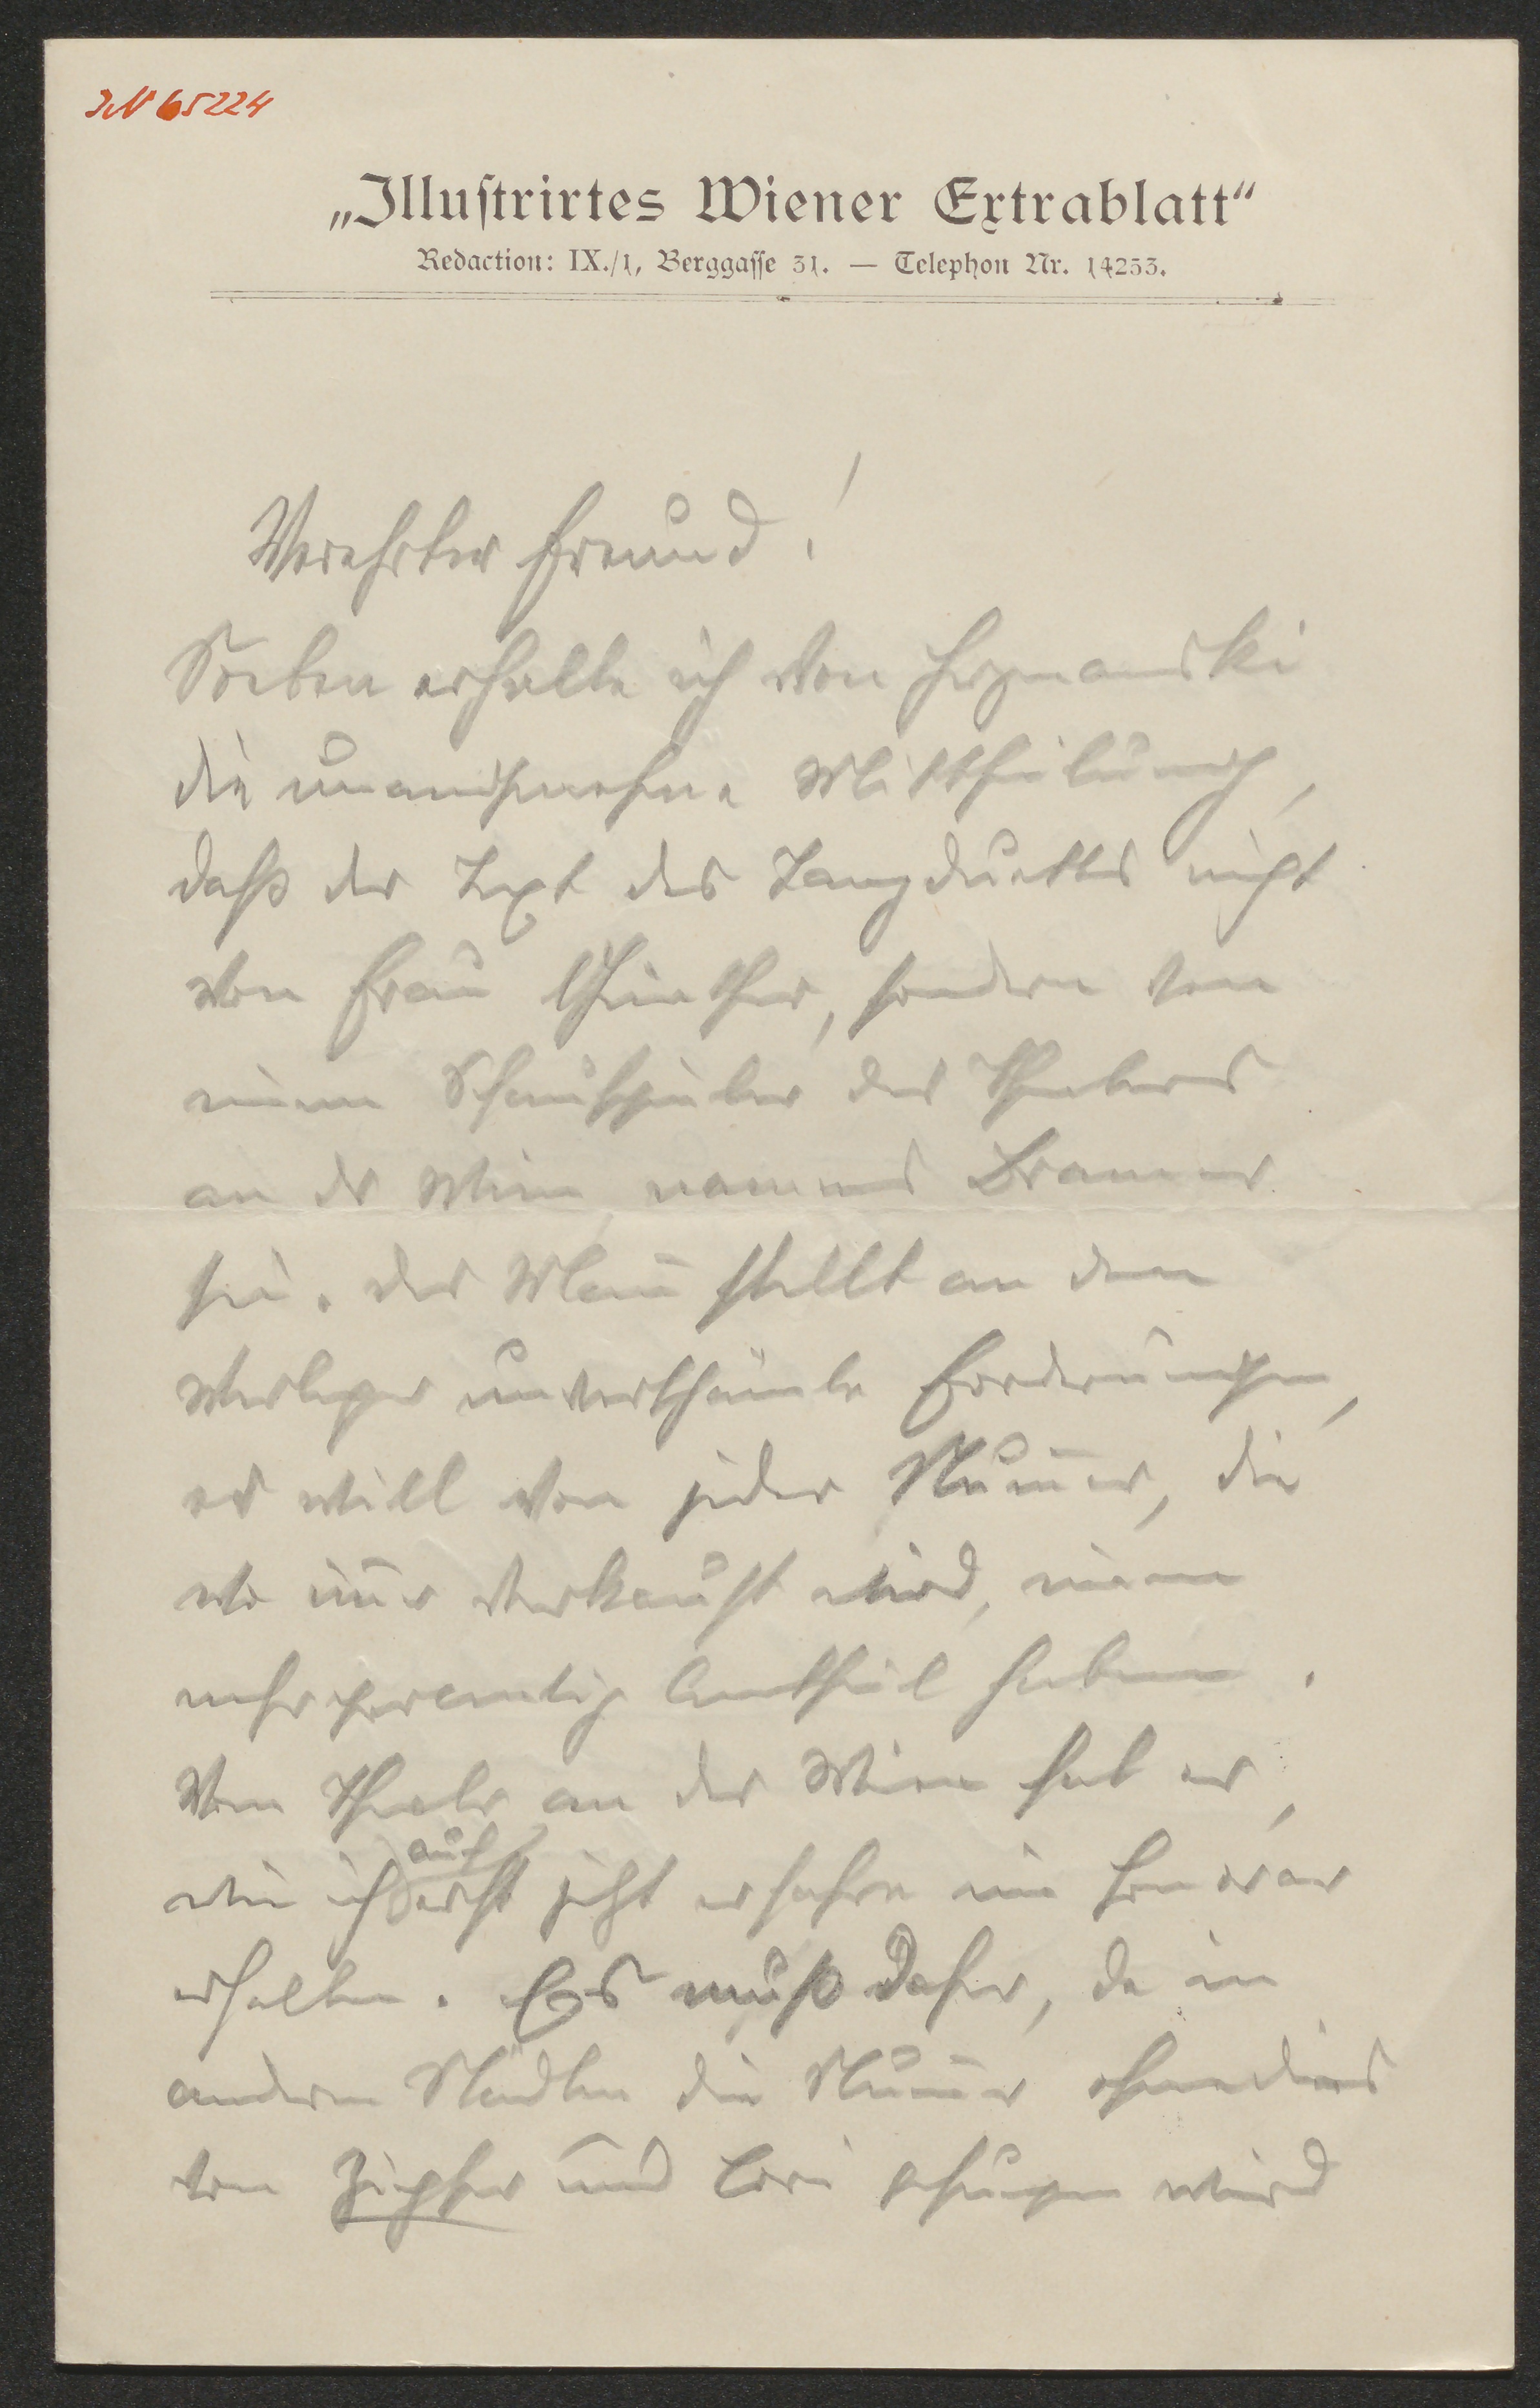 IN 65224
„Illustrirtes Wiener Extrablatt“
Redaction: IX./1, Berggasse 31. — Telephon Nr. 14253.
Verehrter Freund!
Soeben erhalte ich von Herzmanski
die unangenehme Mittheilung,
daß der Text des Tanzduettes nicht
von Frau Günther, sondern von
einem Schauspieler des Theaters
an der Wien namens Bramer
sei. Der Mañ stellt an den
Verleger unverschämte Forderungen,
er will von jeder Num̄er, die
wo im̄er verkauft wird, einen
mehrprocentig Antheil haben.
Vom Theater an der Wien hat er,
wie ich auch erst jetzt erfahre ein Honorar
erhalten. Es muß daher, da in
anderen Städten die Num̄er ohnedies
von und Lori gesungen wird